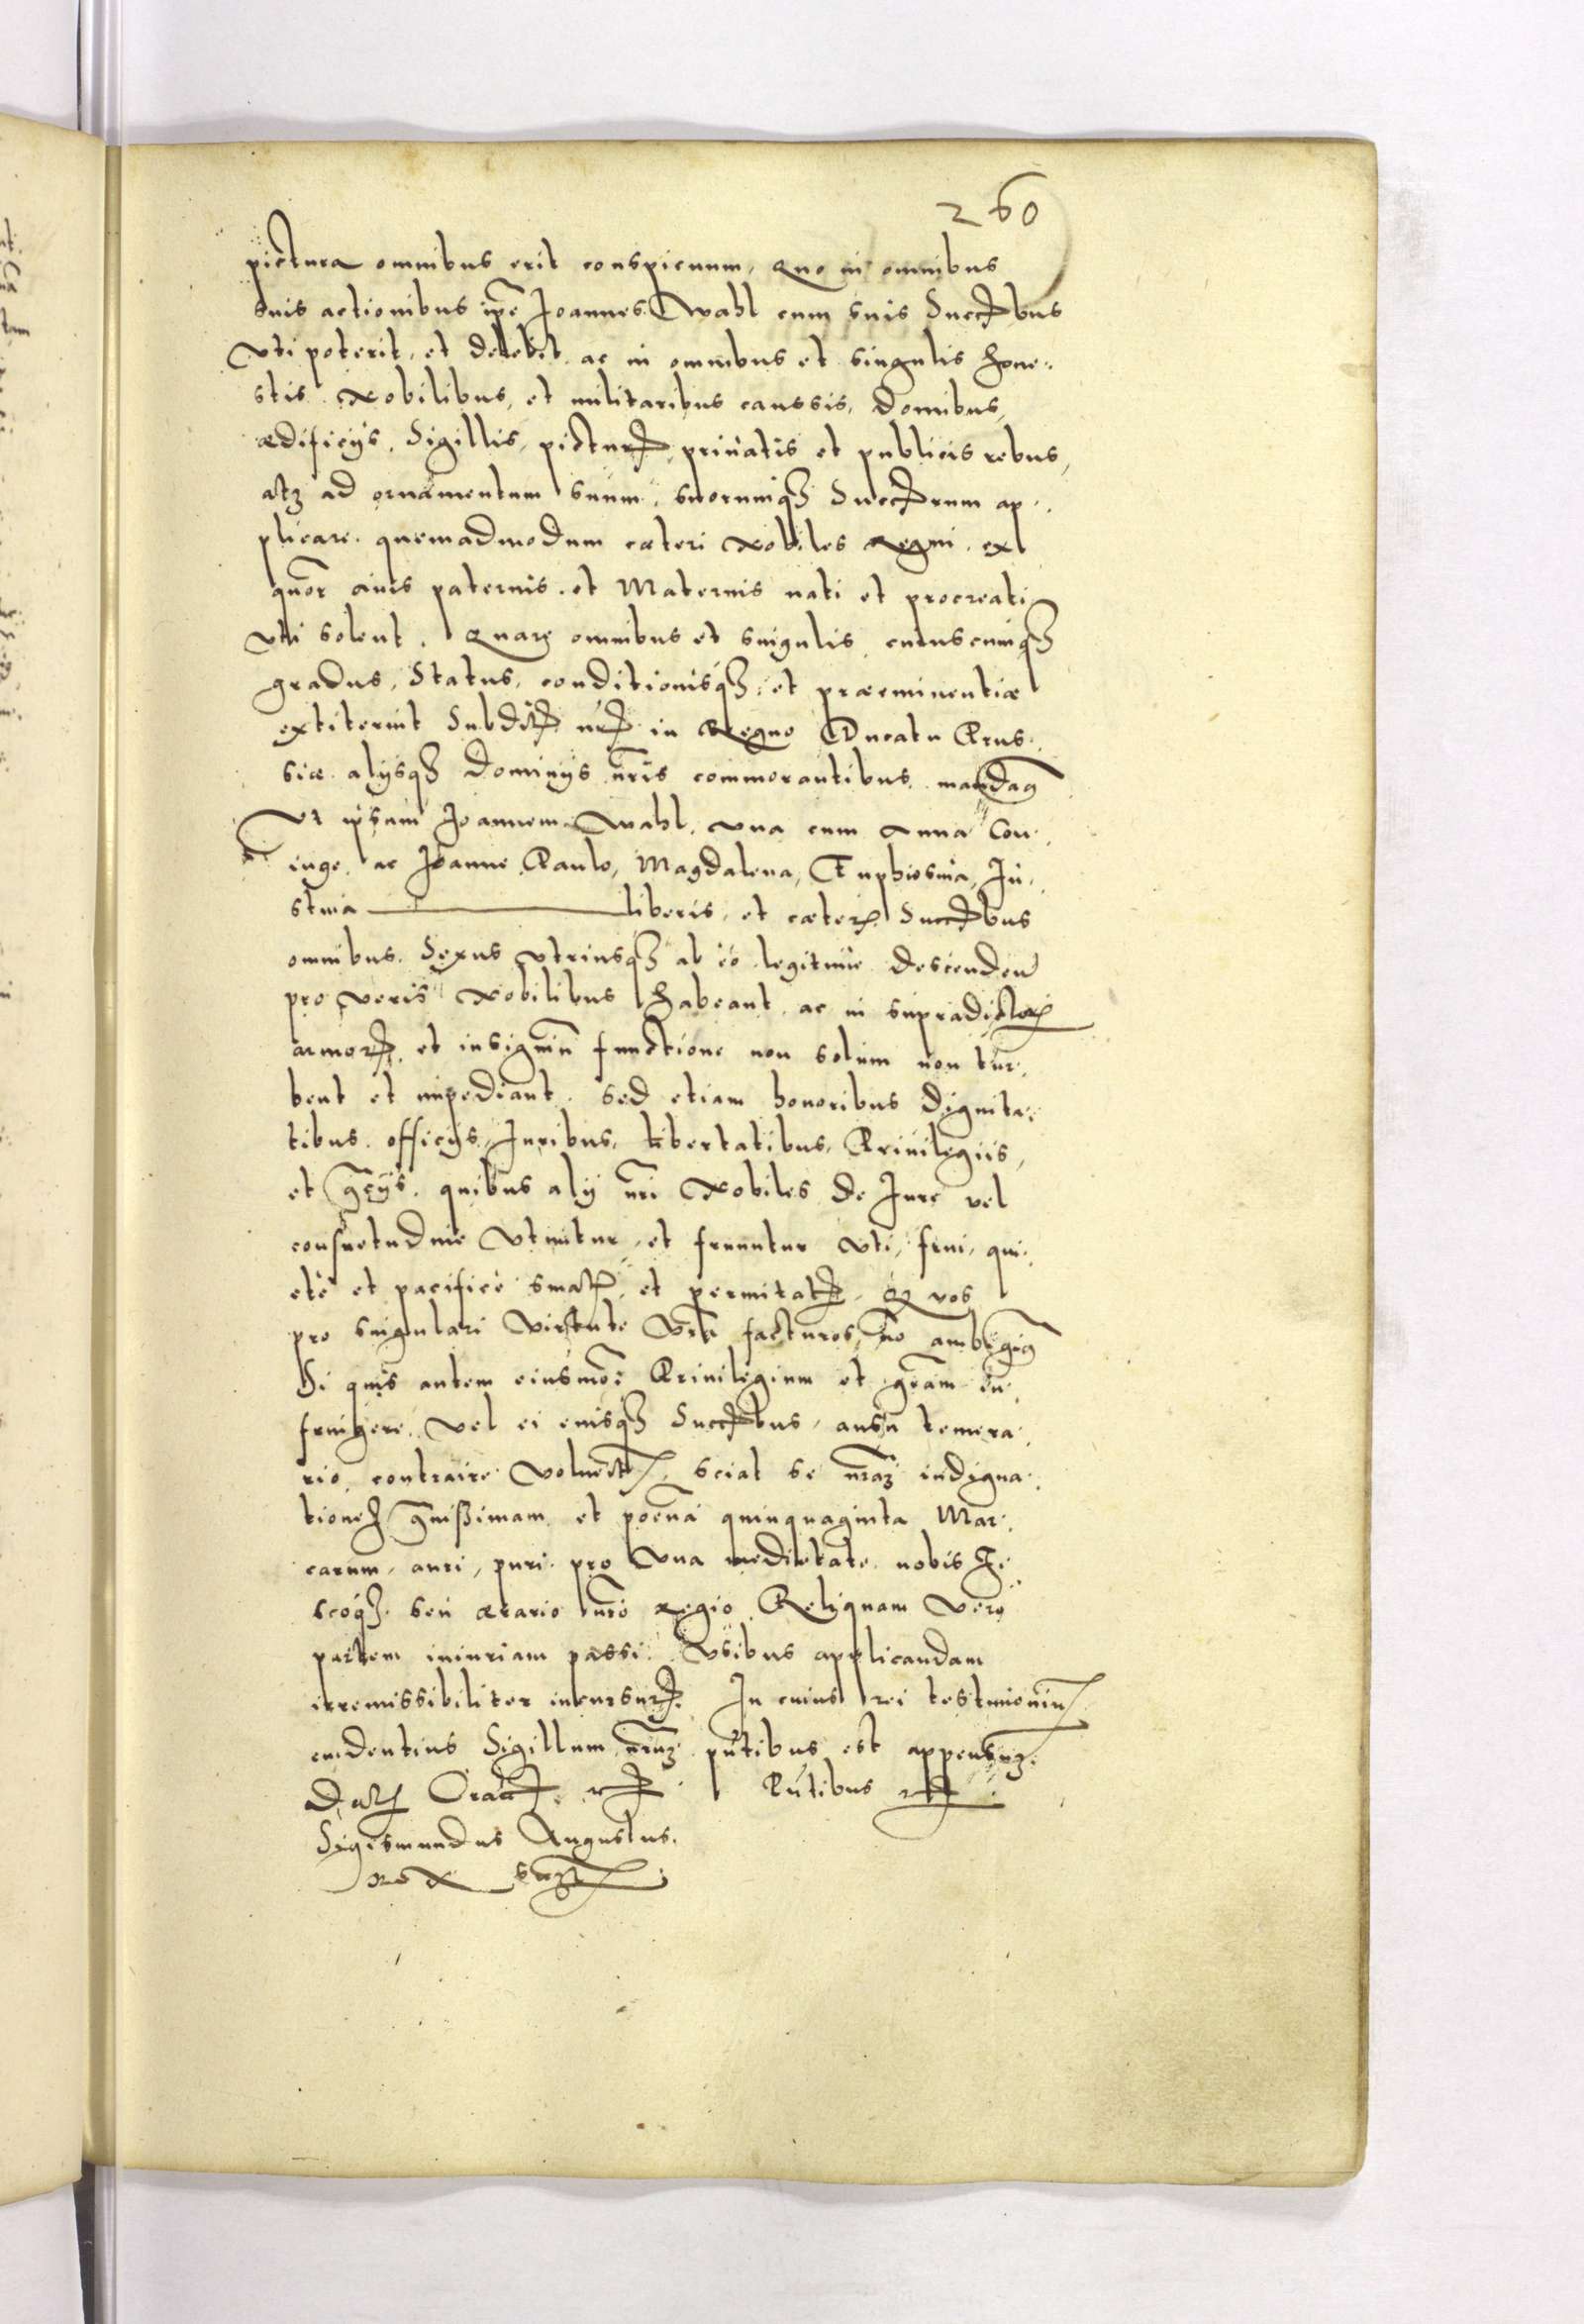 260
pictura omnibus erit conspicuum, Quo in omnibus
suis actionibus ip̄e Joannes Wahl cum suis Succ̄bus
Uti poterit, et debebit, ac in omnibus et singulis hone-
stis Nobilibus, et militaribus caussis, domibus,
ædificijs, Sigillis, pictur, priuatis et publicis rebus,
atq ad ornamentum suum, suorumq Succrum ap-
plicare, quemadmodum cæteri Nobiles Regni, ex
quor̄ auis paternis et Maternis nati et procreati
uti solent. Quare omnibus et singulis cuiuscumq
gradus, Status, conditionisq, et præeminentiæ
extiterint Subdit nr̄ in Regno Ducatu Prus-
siæ alijsq Dominijs nr̄is commorantibus, mandam9
Ut ipsum Joannem Wahl, una cum Anna Con-
iuge, ac Joanne, Paulo, Magdalena, Euphrosina, Ju-
stina liberis, et cæter Succbus
omnibus Sexus utriusq ab eo legitime descenden
pro veris Nobilibus habeant, ac in supradictor
armor, et insigniū functione non solum non tur-
bent et impediant, sed etiam honoribus Dignita-
tibus officijs, Juribus, libertatibus, Priuilegiis,
et gr̄cijs, quibus alij nr̄i Nobiles de Jure vel
consuetudine utuntur, et fruuntur uti, frui, qui-
ete et pacifice sinat, et permitat, Q vos
pro singulari virtute vr̄a facturos, nō ambigim9
Si quis autem eiusmōi Priuilegium et gr̄am in-
fringere, vel ei eiusq Succbus, ausu temera-
rio contraire voluerit, sciat se nr̄aȝ indigna-
tione grauißimam et poenā quinquaginta Mar-
carum, auri, puri pro una medietate nobis Fi-
scoq seu ærario nr̄o Regio Reliquam vero
partem iniuriam passi usibus applicandam
irremissibiliter incursur. In cuius rei testimoniū
euidentius Sigillum nr̄uȝ pn̄tibus est appensuȝ.
Dat Crac Pn̄tibus
Sigismundus Augustus.
Rex